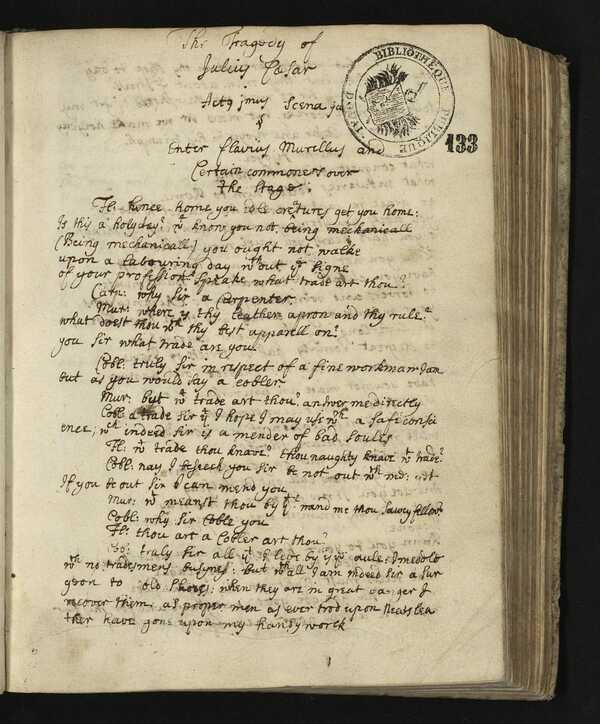 The Tragedy of
Julius Cæsar
Actq jmus Scena
BIBLIOTHÈQUE PUBLIQUE DOUAI
133
Enter flavius Murellus and
Certain commoners over
the stage.
Fl: hence home you idle creatures get you home:
Is this a holyday? wt know you not, being mechanicall
(Being mechanicall) you ought not walke
upon a labouring day wthout ye signe
of your profession? Speake what trade art thou?
Carp: why Sir a Carpenter.
Mur: where is thy leathern apron and thy rule?
what doest thou wth thy best apparell on?
you Sir what trade are you
Cobl: truly Sir in respect of a fine workman I am
but as you would say a cobler
Mur: but wt trade art thou? answer me directly
Cobl a trade Sir yt I hope I may use wth a safe consci
ence, wch indeed Sir is a mender of bad soules
Fl: wt trade thou knave? thou naughty knave wt trade?
Cobl: nay I beseech you Sir be not out wth me: yet
If you be out Sir I can mend you
Mur: wt meanst thou by yt: mend me thou sawcy fellow
Cobl: why Sir Coble you
Fl: thou art a Cobler art thou?
Co: truly Sir all yt I live by is ye aule: I medole
wth no tradesmens busines: but wthall I am indeed Sir a Sur
geon to old Shoes: when they are in great danger I
recover them, as proper men as ever trod upon Neats lea
ther have gone upon my handy worek